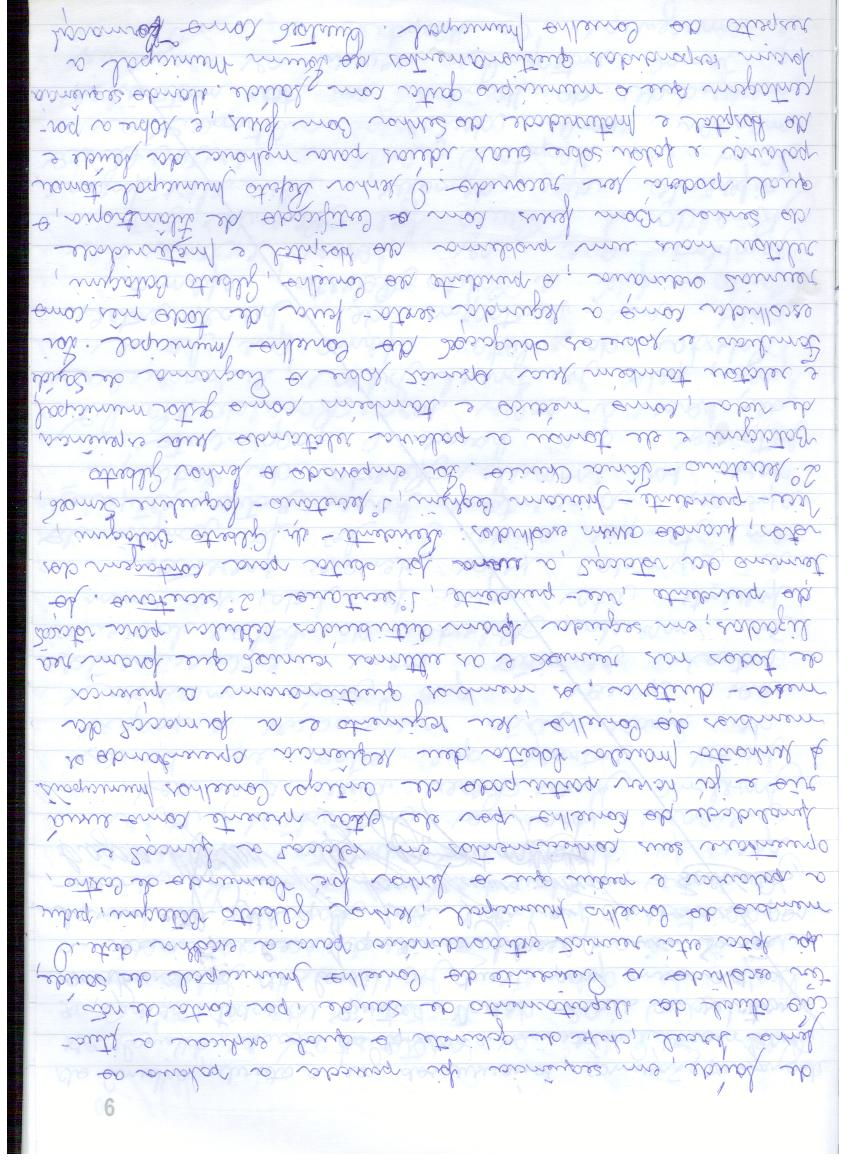 6
de saúde, em sequência foi passada a palavra ao
senhor Israel, chefe de gabinete, o qual explicou a situa-
ção atual do departamento de saúde, por conta de não
ter escolhido o Presidente do Conselho Municipal de Saúde,
foi feita esta reunião extraordinária para a escolha deste. O
membro do Conselho Municipal, senhor Gilberto Batagini, pediu
a palavra e pediu que o senhor José Raimundo de Castro,
apresentasse seus conhecimentos em relação a função e
finalidade do Conselho por ele estar presente como usuá
rio e já haver participado de antigos Conselhos Municipais.
A senhorita Marcela Roberta deu sequência apresentando os
membros do Conselho, seu regimento e a formação da
mesa-diretora, os membros questionaram a presença
de todos nas reuniões e as ultimas reuniões que foram rea
lizadas, em seguida foram distribuídas cédulas para votação
do presidente, vice-presidente, 1º secretário, 2º secretário. Ao
termino da votação, a urna foi aberta para contagem dos
votos, ficando assim escolhidos: Presidente - Sr. Gilberto Batagini,
Vice-presidente - Miriam, 1º secretário - Jaqueline Simões,
2º secretário - Tânia Chinica. Foi empossado o senhor Gilberto
Batagini e ele tomou a palavra relatando sua experiência
de vida, como médico e também como gestor municipal
e relatou também sua opinião sobre o Programa de Saúde
Familiar e sobre as obrigações do Conselho Municipal. Foi
escolhida como a segunda sexta-feira de todo mês como
reunião ordinária, o presidente do Conselho, Gilberto Batagini,
relatou mais um problema do Hospital e Maternidade
do Senhor Bom Jesus com o Certificado de Filantropia, o
qual poderá ser recorrido. O senhor Prefeito Municipal tomou
palavra e falou sobre suas idéias para melhoria da saúde e
do Hospital e Maternidade do Senhor Bom Jesus, e sobre a por-
centagem que o município gasta com saúde. Dando sequência
foram respondidos questionamentos do fórum Municipal a
respeito do Conselho Municipal. Questões como formação